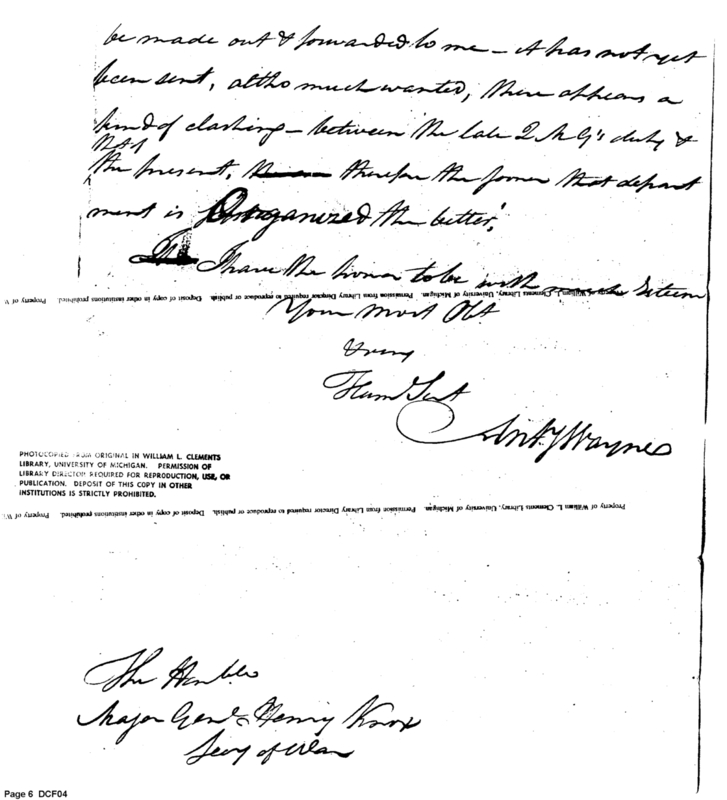 be made out & forwarded to me – it has not yet
been sent, altho much wanted, there appears a
kind of clashing – between the late Q M G's duty &
that
the present, therefore the sooner that depart
ment is Organized the better,
I have the honor to be with much Esteem
Property of William L. Clements Library, University of Michigan. Permission from Library Director required to reproduce or publish. Deposit of copy in other institutions prohibited. Property of W.
Your most Obt
& very
Huml Sert
Anty Wayne
PHOTOCOPIED FROM ORIGINAL IN WILLIAM L. CLEMENTS
LIBRARY, UNIVERSITY OF MICHIGAN. PERMISSION OF
LIBRARY DIRECTOR REQUIRED FOR REPRODUCTION, USE, OR
PUBLICATION. DEPOSIT OF THIS COPY IN OTHER
INSTITUTIONS IS STRICTLY PROHIBITED.
Property of William L. Clements Library, University of Michigan. Permission from Library Director required to reproduce or publish. Deposit of copy in other institutions prohibited. Property of W.
The Honble
Major Genl Henry Knox
Secy of War
Page 6 DCF04